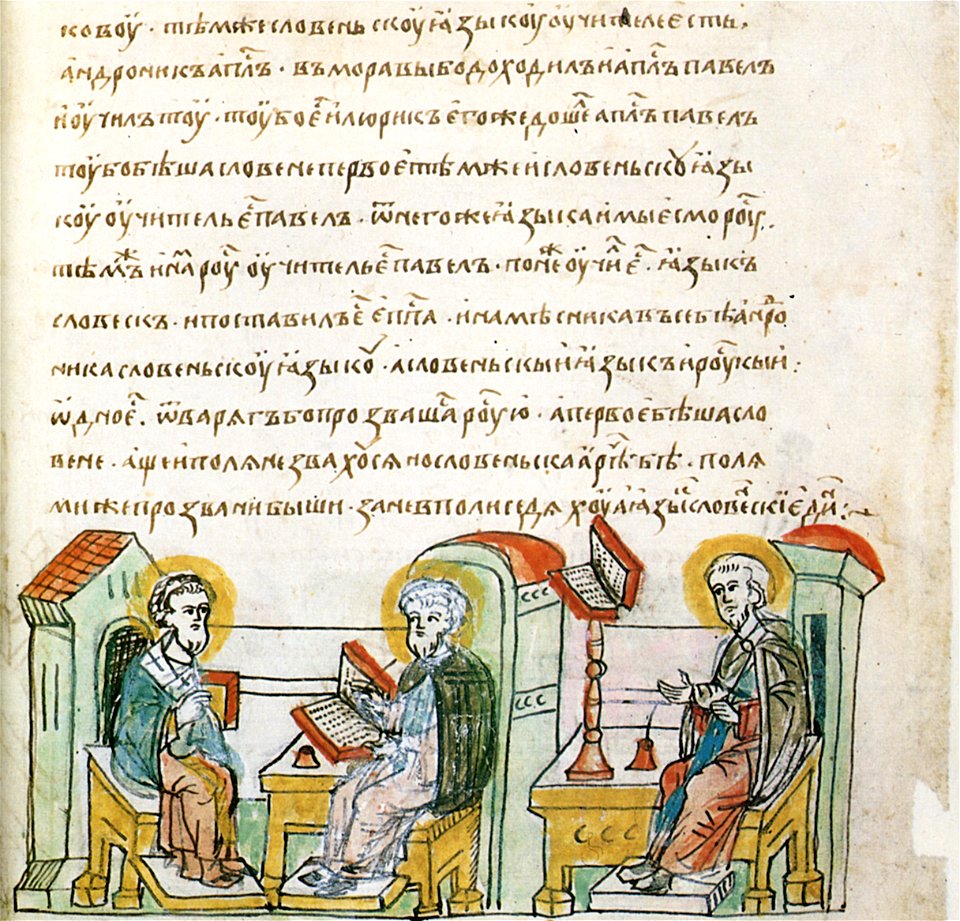 ковоу · тѣмже словеньскоу ꙗзыкоу оучитель есть ·
андроникъ апⷭ҇лъ · въ моравы бо доходилъ и апⷭ҇лъ павелъ
и оучилъ тоу · тоу бо єⷭ҇ илюрикъ єгоже дошелъ апⷭ҇лъ павелъ
тоу бо бѣша словене первоє · тѣмже и словеньскоу ꙗзы
коу оучитель єⷭ҇ павелъ · ѿ негоже ꙗзыка и мы єсмо роуⷭ҇ ·
тѣмⷤъ и наⷨ роуⷭ҇ оучитель єⷭ҇ павелъ · понеⷤ оучиⷧ єⷭ҇ · ꙗзыкъ
словескъ · и поставилъ єⷭ҇ єпⷭ҇па · и намѣсника въ себѣ анⷣро
ника словеньскоу ꙗзыкоу · а словеньскый ꙗзыкъ и роускый ·
ѡдно єⷭ҇ · ѿ варягъ бо прозвашаⷭ҇ роусью · а первоє бѣша сло
вене · аще и поляне звахоусѧ но словеньскаа рѣⷱ бѣ · поля
ми же прозвани быши · зане в поли седяхоу а ꙗзыⷦ словеⷩскїи єдиⷩ ·